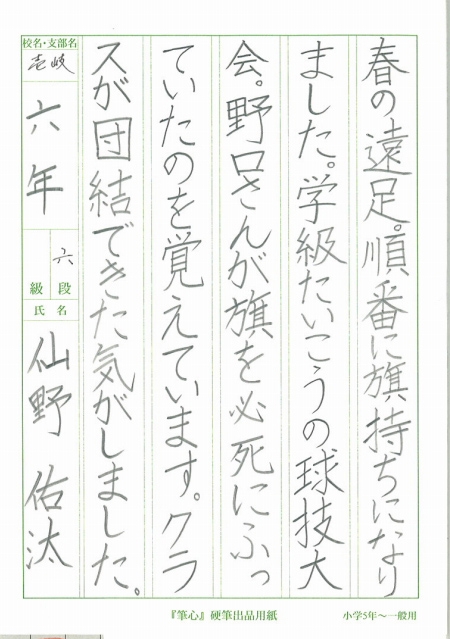 春の遠足。順番に旗持ちになり
ました。学級たいこうの球技大
会。野口さんが旗を必死にふっ
ていたのを覚えています。クラ
スが団結できた気がしました。
校名・支部名
壱岐
六年
六
級 段
氏 名
仙野 佑汰
『筆心』硬筆出品用紙
小学5年〜一般用